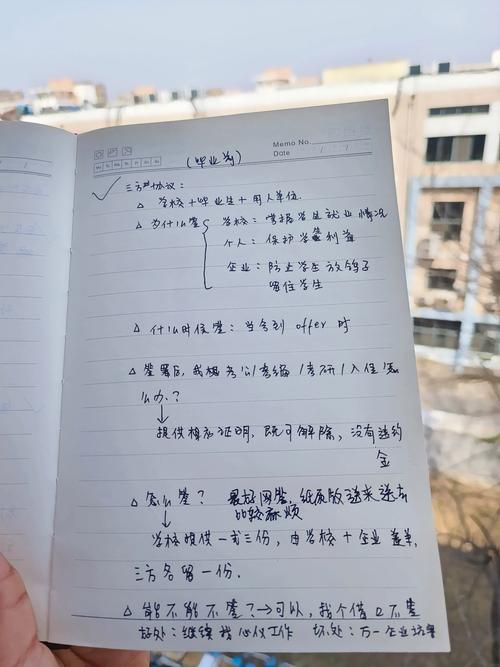 Memo No.
Date
Mo Tu We Th Fr Sa Su
(毕业前)
三方协议:
△ 学校+毕业生+用人单位.
△ 为什么签 学校: 掌握学生就业情况
个人: 保护学生利益
企业: 防止学生放鸽子
留住学生
△ 什么时候签: 当拿到 offer 时
△ 签署后, 我想考公/考编/考研/入伍怎
么办?
提供相应证明, 既可解除, 没有违约
金
△ 怎么签? 最好网签, 纸质版送来送去
比较麻烦
学校提供一式三份, 由学校+企业 盖章,
三方各留一份.
△ 能不能不签?→可以, 找个借口不签
好处: 继续找心仪工作 坏处: 万一企业